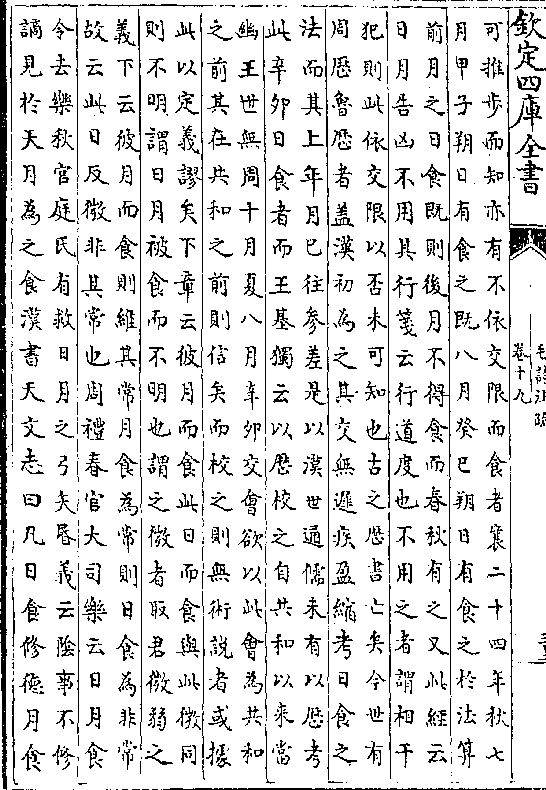 欽定四庫全書
毛詩注疏
卷十九
可推步而知亦有不依交限而食者襄二十四年秋七
月甲子朔日有食之既八月癸巳朔日有食之於法算
前月之日食既則後月不得食而春秋有之又此經云
日月告凶不用其行箋云行道度也不用之者謂相干
犯則此依交限以否未可知也古之厯書亡矣今世有
周厯魯厯者蓋漢初為之其交無遲疾盈縮考日食之
法而其上年月已往參差是以漢世通儒未有以厯考
此辛卯日食者而王基獨云以厯校之自共和以來當
幽王世無周十月夏八月辛卯交會欲以此會為共和
之前其在共和之前則信矣而校之則無術説者或據
此以定義謬矣下章云彼月而食此日而食與此微同
則不明謂日月被食而不明也謂之微者取君微弱之
義下云彼月而食則維其常月食為常則日食為非常
故云此日反微非其常也周禮春官大司樂云日月食
令去樂秋官庭氏有救日月之弓矢昏義云陰事不修
謫見於天月為之食漢書天文志曰凡日食修德月食